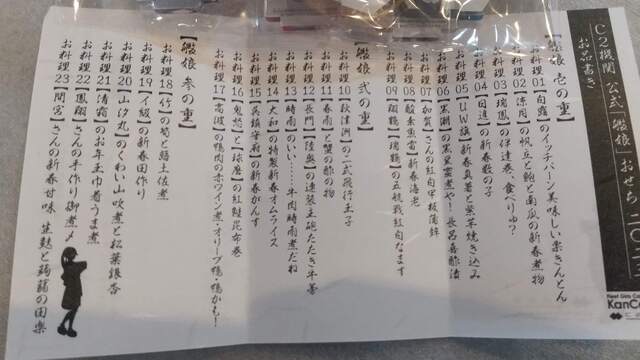 C2機関 公式「艦娘 おせち」二〇二
お品書き
【艦娘 壱の重】
お料理01【白露】のイッチバーン美味しい栗きんとん
お料理02【涼月】の帆立と鮑と南瓜の新春煮物
お料理03【瑞鳳】の伊達巻、食べりゅ?
お料理04【日進】の新春数の子
お料理05【UW旗】新春真薯と紫芋焼き込み
お料理06【黒潮】の黒豆蜜煮や!長呂喜酢漬
お料理07【加賀】さんの紅白平板蒲鉾
お料理08【酸素魚雷】新春海老
お料理09【翔鶴】【瑞鶴】の五航戦紅白なます
【艦娘 弐の重】
お料理10【秋津洲】の二式飛行玉子
お料理11【春雨】と蟹の酢の物
お料理12【長門】【陸奥】の連装主砲たたき牛蒡
お料理13【時雨】のいい……牛肉時雨煮だね
お料理14【大和】の特製新春オムライス
お料理15【呉鎮守府】の新春がんす
お料理16【鬼怒】と【球磨】の紅鮭昆布巻
お料理17【高波】の鴨肉の赤ワイン煮・オリーブ鴨・鴨かも!
【艦娘 参の重】
お料理18【竹】の筍と鰹土佐煮
お料理19【イ級】の新春田作り
お料理20【山汐丸】のくわい山吹煮と松葉銀杏
お料理21【清霜】のお年玉巾着うま煮
お料理22【鳳翔】さんの手作り御煮〆
お料理23【間宮】さんの新春甘味 生麩と蒟蒻の田楽
KanCo